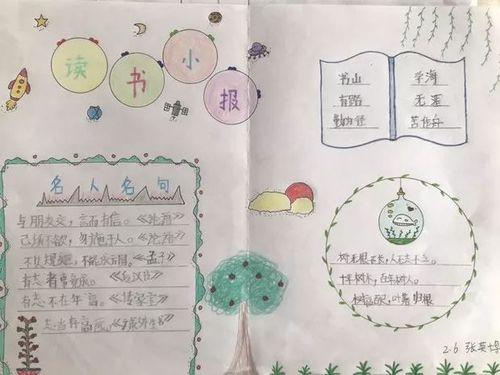 读书小报
书山 学海
有路 无涯
勤为径 苦作舟
名人名句
与朋友交,言而有信。《论语》
己所不欲,勿施于人。《论语》
不以规矩,不能成方圆《孟子》
有志者事竟成。《后汉书》
有志不在年高。《传家宝》
志当存高远。《诸葛
树无根不长,人无志不立。
十年树木,百年树人。
树高百尺,叶落归根
2.6 张英